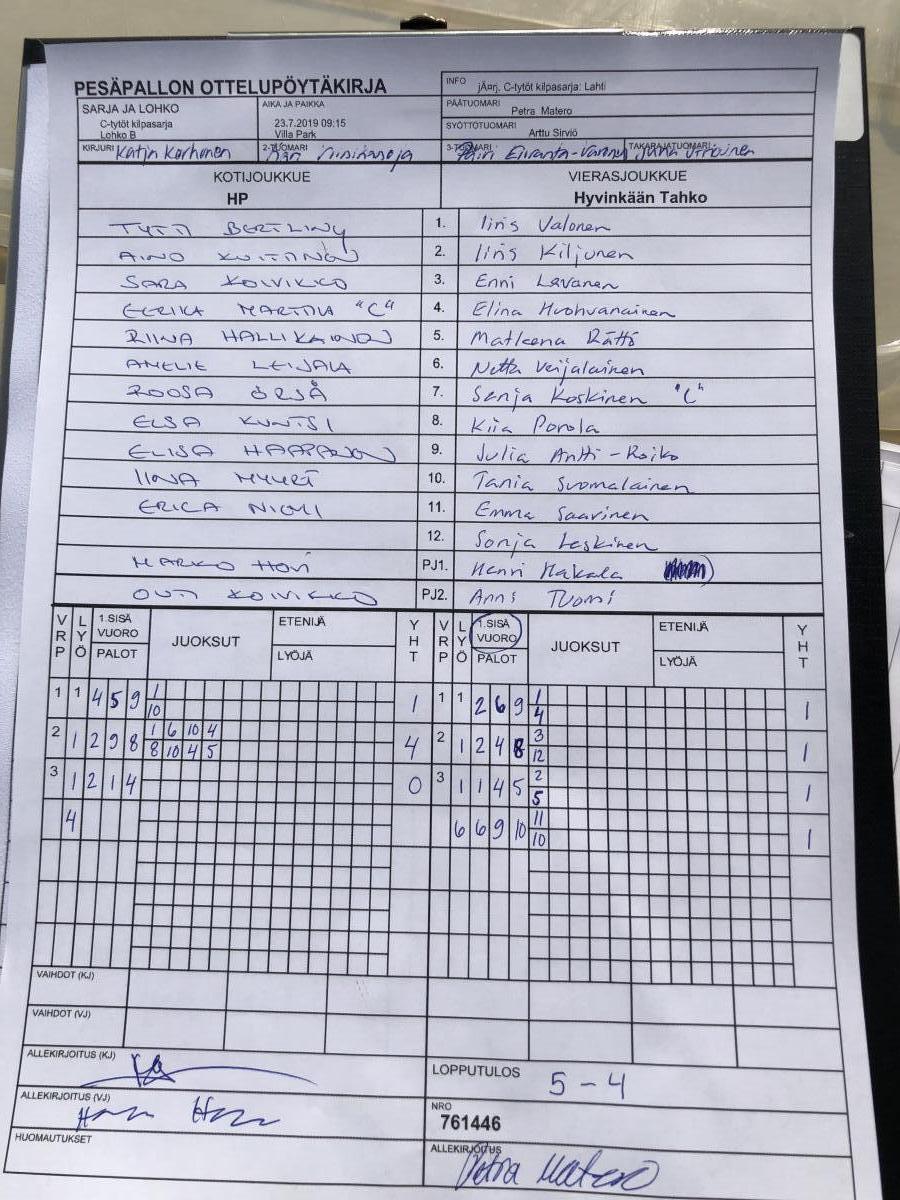 PESÄPALLON OTTELUPÖYTÄKIRJA
INFO jÄ¤rj. C-tytöt kilpasarja: Lahti
SARJA JA LOHKO
C-tytöt kilpasarja
Lohko B
AIKA JA PAIKKA
23.7.2019 09:15
Villa Park
PÄÄTUOMARI Petra Matero
SYÖTTÖTUOMARI Arttu Sirviö
KIRJURI Katja Korhonen 2-TUOMARI 3-TUOMARI TAKARAJATUOMARI
KOTIJOUKKUE VIERASJOUKKUE
HP Hyvinkään Tahko
TYTTI BERTLING 1. Iiris Valonen
AINO KUITTINEN 2. Iiris Kiljunen
SARA KOIVIKKO 3. Enni Levanen
EERIKA MARTTILA "C" 4. Elina Huohvanainen
RIINA HALLIKAINEN 5. Matleena Rättö
AMELIE LEIJALA 6. Netta Veijalainen
ROOSA ÖRSÅ 7. Senja Koskinen "C"
ELSA KUNTSI 8. Kiia Porola
ELISA HAAPANEN 9. Julia Antti-Roiko
IINA MYYRÄ 10. Tania Suomalainen
ERICA NIEMI 11. Emma Saarinen
12. Sonja Leskinen
MARKO HOVI PJ1. Henri Makala
OUTI KOIVIKKO PJ2. Anni Tuomi
VRP LYÖ 1.SISÄ VUORO PALOT JUOKSUT ETENIJÄ LYÖJÄ YHT VRP LYÖ 1.SISÄ VUORO PALOT JUOKSUT ETENIJÄ LYÖJÄ YHT
1 1 4 5 9 1 1 1 1 2 6 9 1 1
10 4
2 1 2 9 8 1 6 10 4 4 2 1 2 4 8 3 1
8 10 4 5 12
3 1 2 1 4 0 3 1 1 4 5 2 1
5
4 6 6 9 10 11 1
10
VAIHDOT (KJ)
VAIHDOT (VJ)
ALLEKIRJOITUS (KJ)
LOPPUTULOS 5 - 4
ALLEKIRJOITUS (VJ)
NRO
761446
HUOMAUTUKSET
ALLEKIRJOITUS
Petra Matero